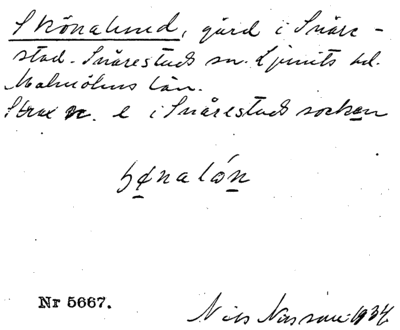 Skönalund, gård i Snåre-
stad. Snårestads sn. Ljunits hd.
Malmöhus län.
Strax n. e i Snårestads socken
Nr 5667.
Nils Nilsson 1934